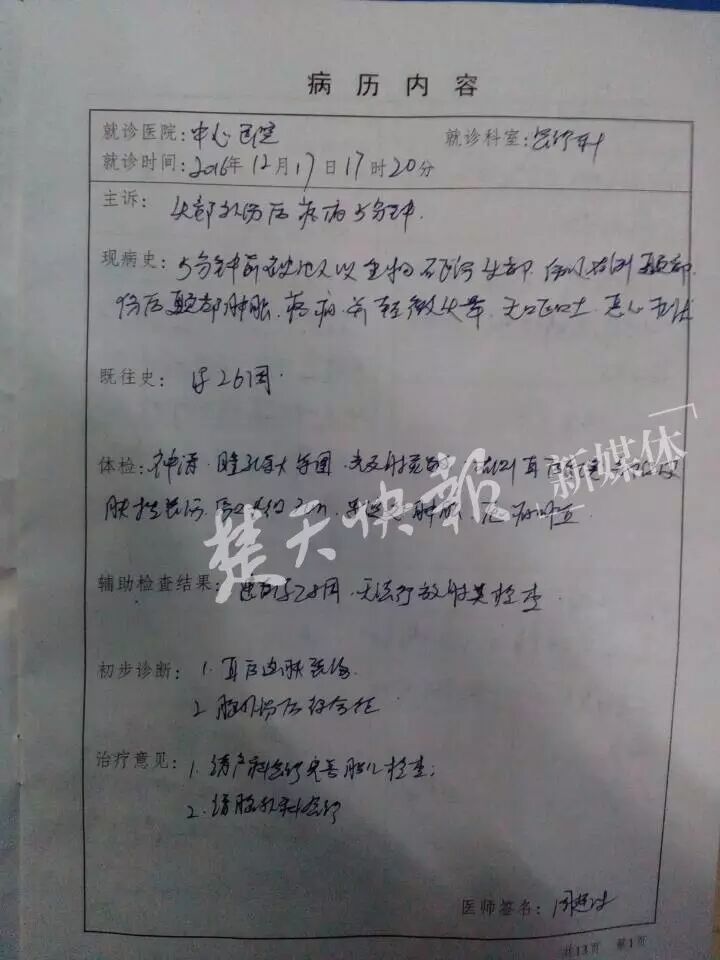 病历内容
就诊医院: 中心医院 就诊科室: 急诊科
就诊时间: 2016年12月17日17时20分
主诉: 头部外伤后疼痛5分钟.
现病史: 5分钟前被他人以重物 头部, 颞部
伤后 部肿胀、疼痛、并轻微头晕、无呕吐、恶心
既往史: 孕26周.
体检: 神清. 瞳孔等大等圆. 光反射 耳后 皮
肤挫裂伤. 肿胀.
新媒体
楚天快報
辅助检查结果: 孕26周. 无法行放射类检查.
初步诊断: 1. 耳后皮肤裂伤.
2. 脑外伤后综合征
治疗意见: 1. 请产科会诊完善胎儿检查;
2. 请脑外科会诊
医师签名:
共13页 第1页